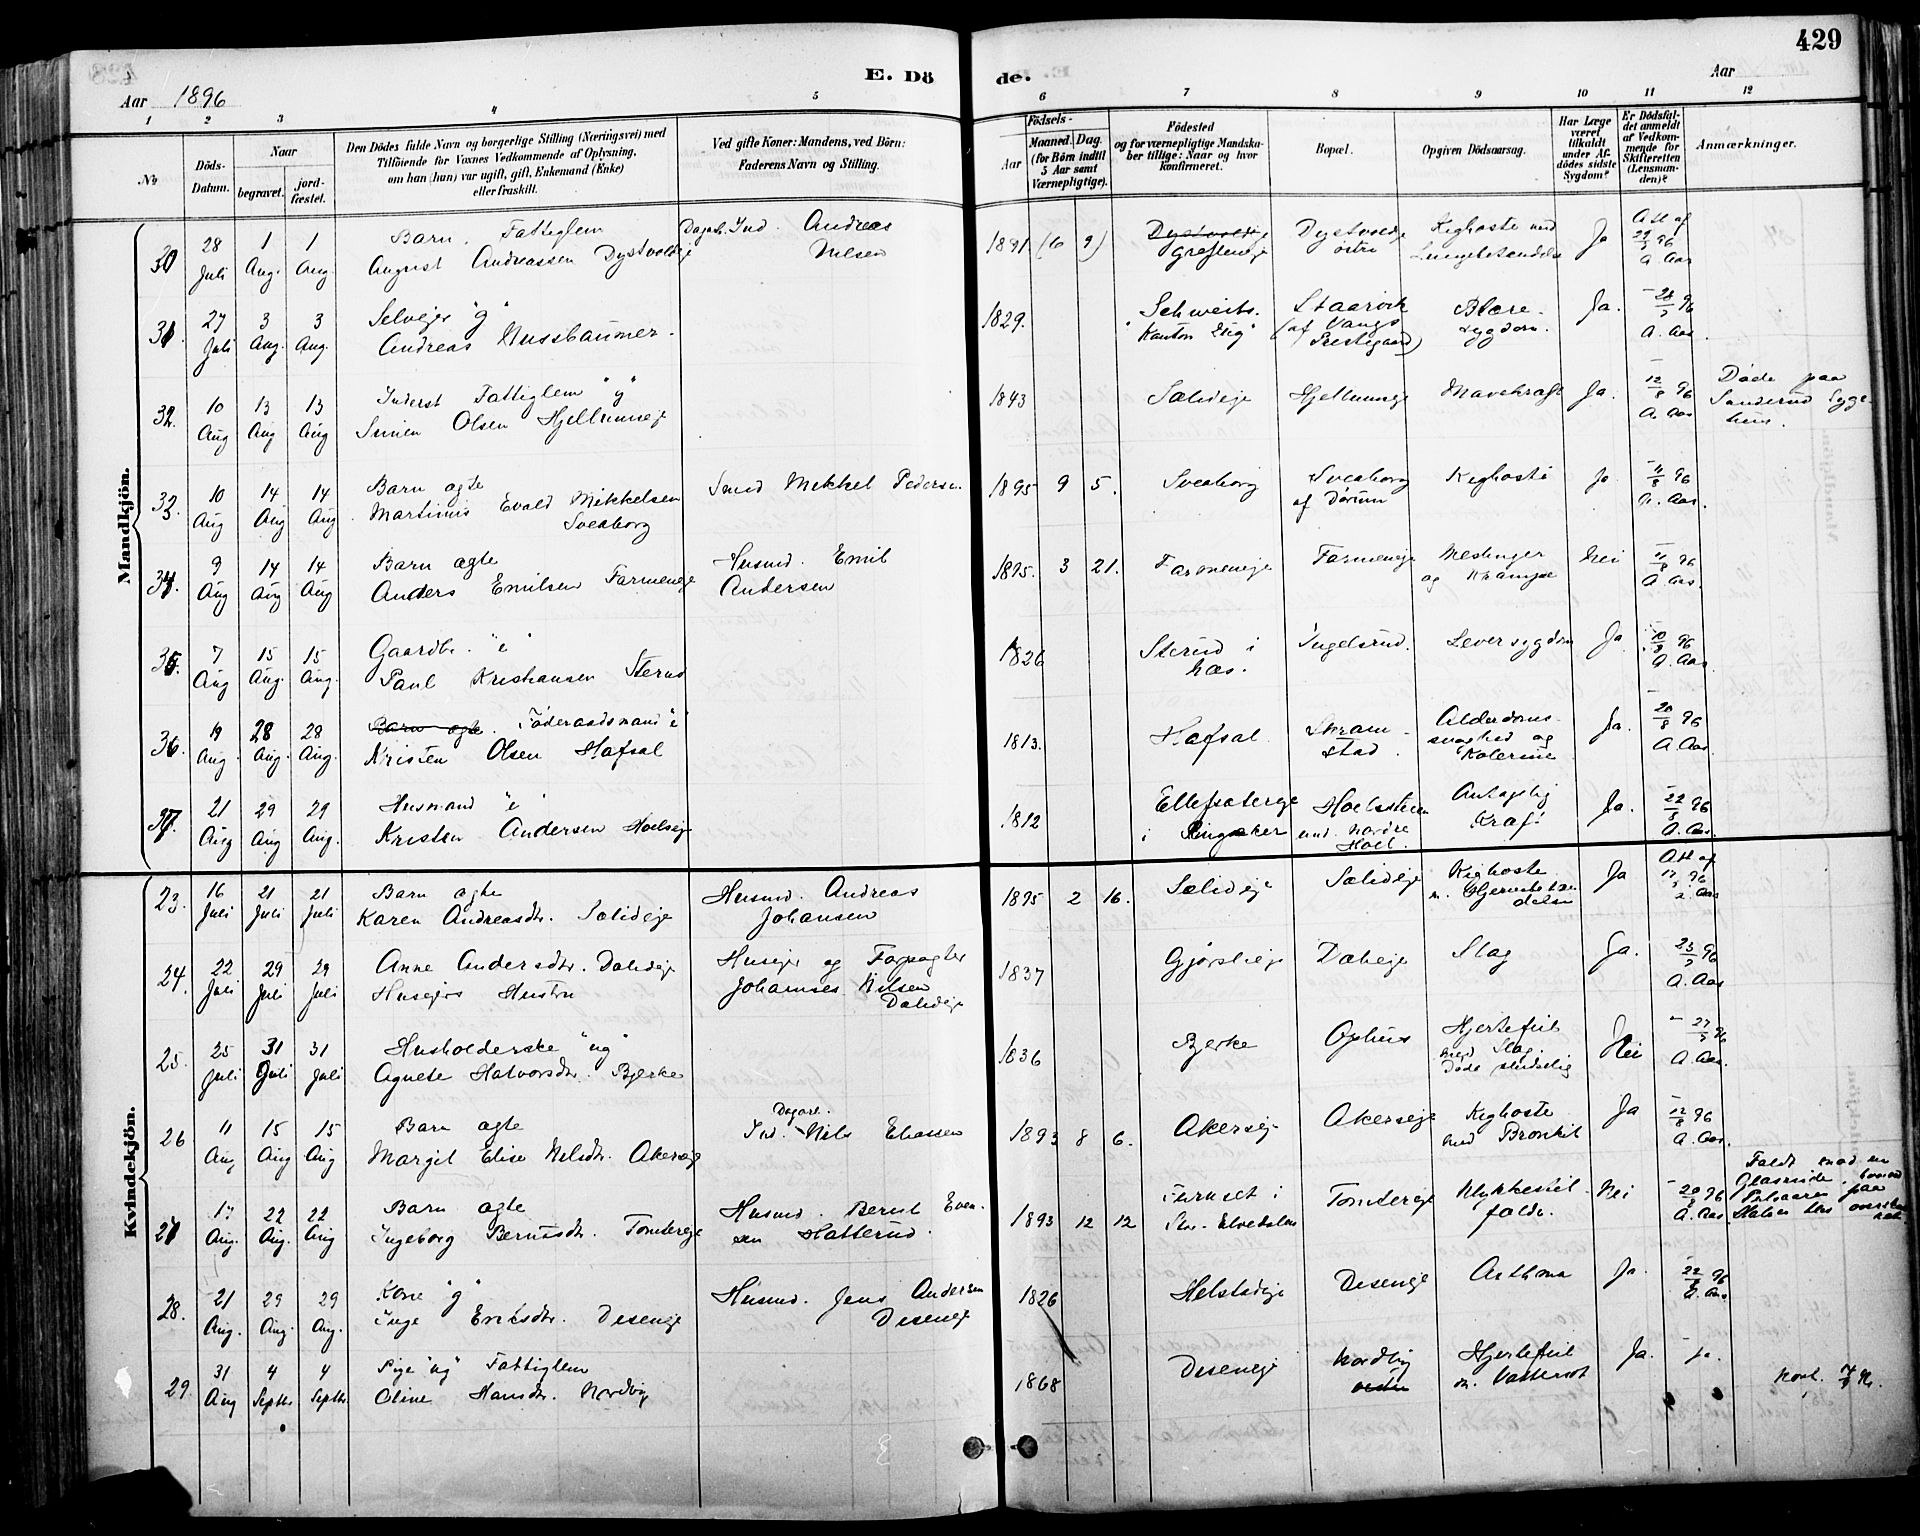 429
E. Dö de.
Aar 1896
Aar
1 2 3 4 5 6 7 8 9 10 11 12
No
Döds-Datum.
Naar
begravet.
jord-fæstet.
Den Dödes fulde Navn og borgerlige Stilling (Næringsvei) med
Tilföiende for Voxnes Vedkommende af Oplysning,
om han (hun) var ugift, gift, Enkemand (Enke)
eller fraskilt.
Ved gifte Koner: Mandens, ved Börn:
Faderens Navn og Stilling.
Födsels-
Aar
Maaned. Dag.
(for Börn indtil
5 Aar samt
Værnepligtige).
Födested
og for værnepligtige Mandska-
ber tillige: Naar og hvor
konfirmeret.
Bopæl.
Opgiven Dödsaarsag.
Har Læge
været
tilkaldt
under Af-
dödes sidste
Sygdom?
Er Dödsfal-
det anmeldt
af Vedkom-
mende for
Skifteretten
(Lensman-
den)?
Anmærkninger.
Mandkjön.
30 28 Juli 1 Aug. 1 Aug.
Barn. Fattiglem
August Andreassen Dystvoldeje
Dagarb. Ind. Andreas
Nilsen
1891 (6 9)
Dystvoldeje
Græslieje
Dystvoldeje
østre
Kighoste med
Lungebetændelse
Ja
Att af 29/7 96 A. Aas
31. 27 Juli 3 Aug. 3 Aug.
Selvejer "g"
Andreas Nussbaumer.
1829.
Schweits.
"Kanton Zug"
Staarvik
(af Vangs
Prestegaard)
Blære-
sygdom.
Ja.
- 28/7 96 A. Aas.
32. 10 Aug 13 Aug 13 Aug
Inderst Fattiglem "g"
Simen Olsen Hjellumseje
1843
Sælideje
Hjellumeje
Mavekræft
Ja.
- 12/8 96 A. Aas
Døde paa
Sanderud Syge-
hus.
33. 10 Aug 14 Aug 14 Aug
Barn ægte
Martinus Evald Mikkelsen
Sveaborg
Smed Mikkel Pedersen.
1895 9 5.
Sveaborg
Sveaborg
af Dørum
Kighoste
Ja
- 11/8 96 A. Aas.
34. 9 Aug 14 Aug 14 Aug
Barn ægte
Anders Emilsen Farmeneje
Husmd. Emil
Andersen
1895. 3 21.
Farmeneje
Farmeneje
Meslinger
og Krampe
Nei
- 11/8 96 A. Aas.
35. 7 Aug 15 Aug. 15 Aug.
Gaardbr. "e"
Paul Kristiansen Sterud
1826
Sterud i
Næs.
Ingelsrud.
Leversygdom
Ja
10/8 96 A. Aas
36. 19 Aug. 28 Aug. 28 Aug.
Barn ægte. Føderaadsmand "e"
Kristen Olsen Hafsal
1813.
Hafsal
Skram-
stad.
Alderdoms-
svaghed og
Kolerine
Ja.
- 20/8 96 A. Aas
37. 21 Aug 29 Aug 29 Aug.
Husmand "e"
Kristen Andersen Hoelseje
1812
Ellefsætereje
i Ringsaker
Hoelsstuen
und. Nordre
Hoel.
Antagelig
Kræft
Ja.
- 22/8 96 A. Aas.
Kvindekjön.
23. 16 Juli 21 Juli 21 Juli
Barn ægte
Karen Andreasdtr. Sælideje
Husmd. Andreas
Johansen
1895 2 16.
Sælideje
Sælideje
Kighoste
m. Hjernebetæn-
delse
Ja
Att af 17/7 96 A. Aas
24. 22 Juli 29 Juli 29 Juli
Anne Andersdtr. Dalideje
Husejers Hustru
Husejer og Forpagter
Johannes Nilsen
Dalideje
1837
Gjørslieje
Dalieje
Slag
Ja.
- 23/7 96 A. Aas
25. 25 Juli 31 Juli 31 Juli
Husholderske "ug"
Agnete Halvorsdtr. Bjerke
1836
Bjerke
Ophus
Hjertefeil
med Slag.
Døde pludselig
Nei
- 27/7 96 A. Aas.
26 11 Aug 15 Aug 15 Aug
Barn ægte
Margit Elise Nilsdtr. Akerseje
Dagarb.
Ind. Nils Eliassen
1893 8 6.
Akerseje
Akerseje
Kighoste
med Bronkit
Ja
- 12/8 96 A. Aas.
27 17 Aug. 22 Aug. 22 Aug
Barn ægte
Ingeborg Berntsdtr. Tomtereje
Husmd. Bernt Even-
sen Hatterud.
1893 12 12
Furuset i
Str. Elvedalen
Tomtereje
Ulykkestil-
fælde.
Nei
- 20/8 96 A. Aas.
Faldt mod en
Glasrude, hvorved
Pulsaaren paa
Halsen blev overskaa-
ret.
28. 21 Aug. 29 Aug. 29 Aug.
Kone "g"
Inge Eriksdtr. Diseneje
Husmd. Jens Andersen
Diseneje
1826
Helstadeje
Diseneje
Asthma
Ja.
- 22/8 96 A. Aas.
29. 31 Aug 4 Septbr 4 Septbr
Pige "ug" Fattiglem
Oline Hansdtr. Nordvig
1868
Diseneje
Nordvig
vestre
Hjertefeil
m. Vattersot
Ja.
- ja.